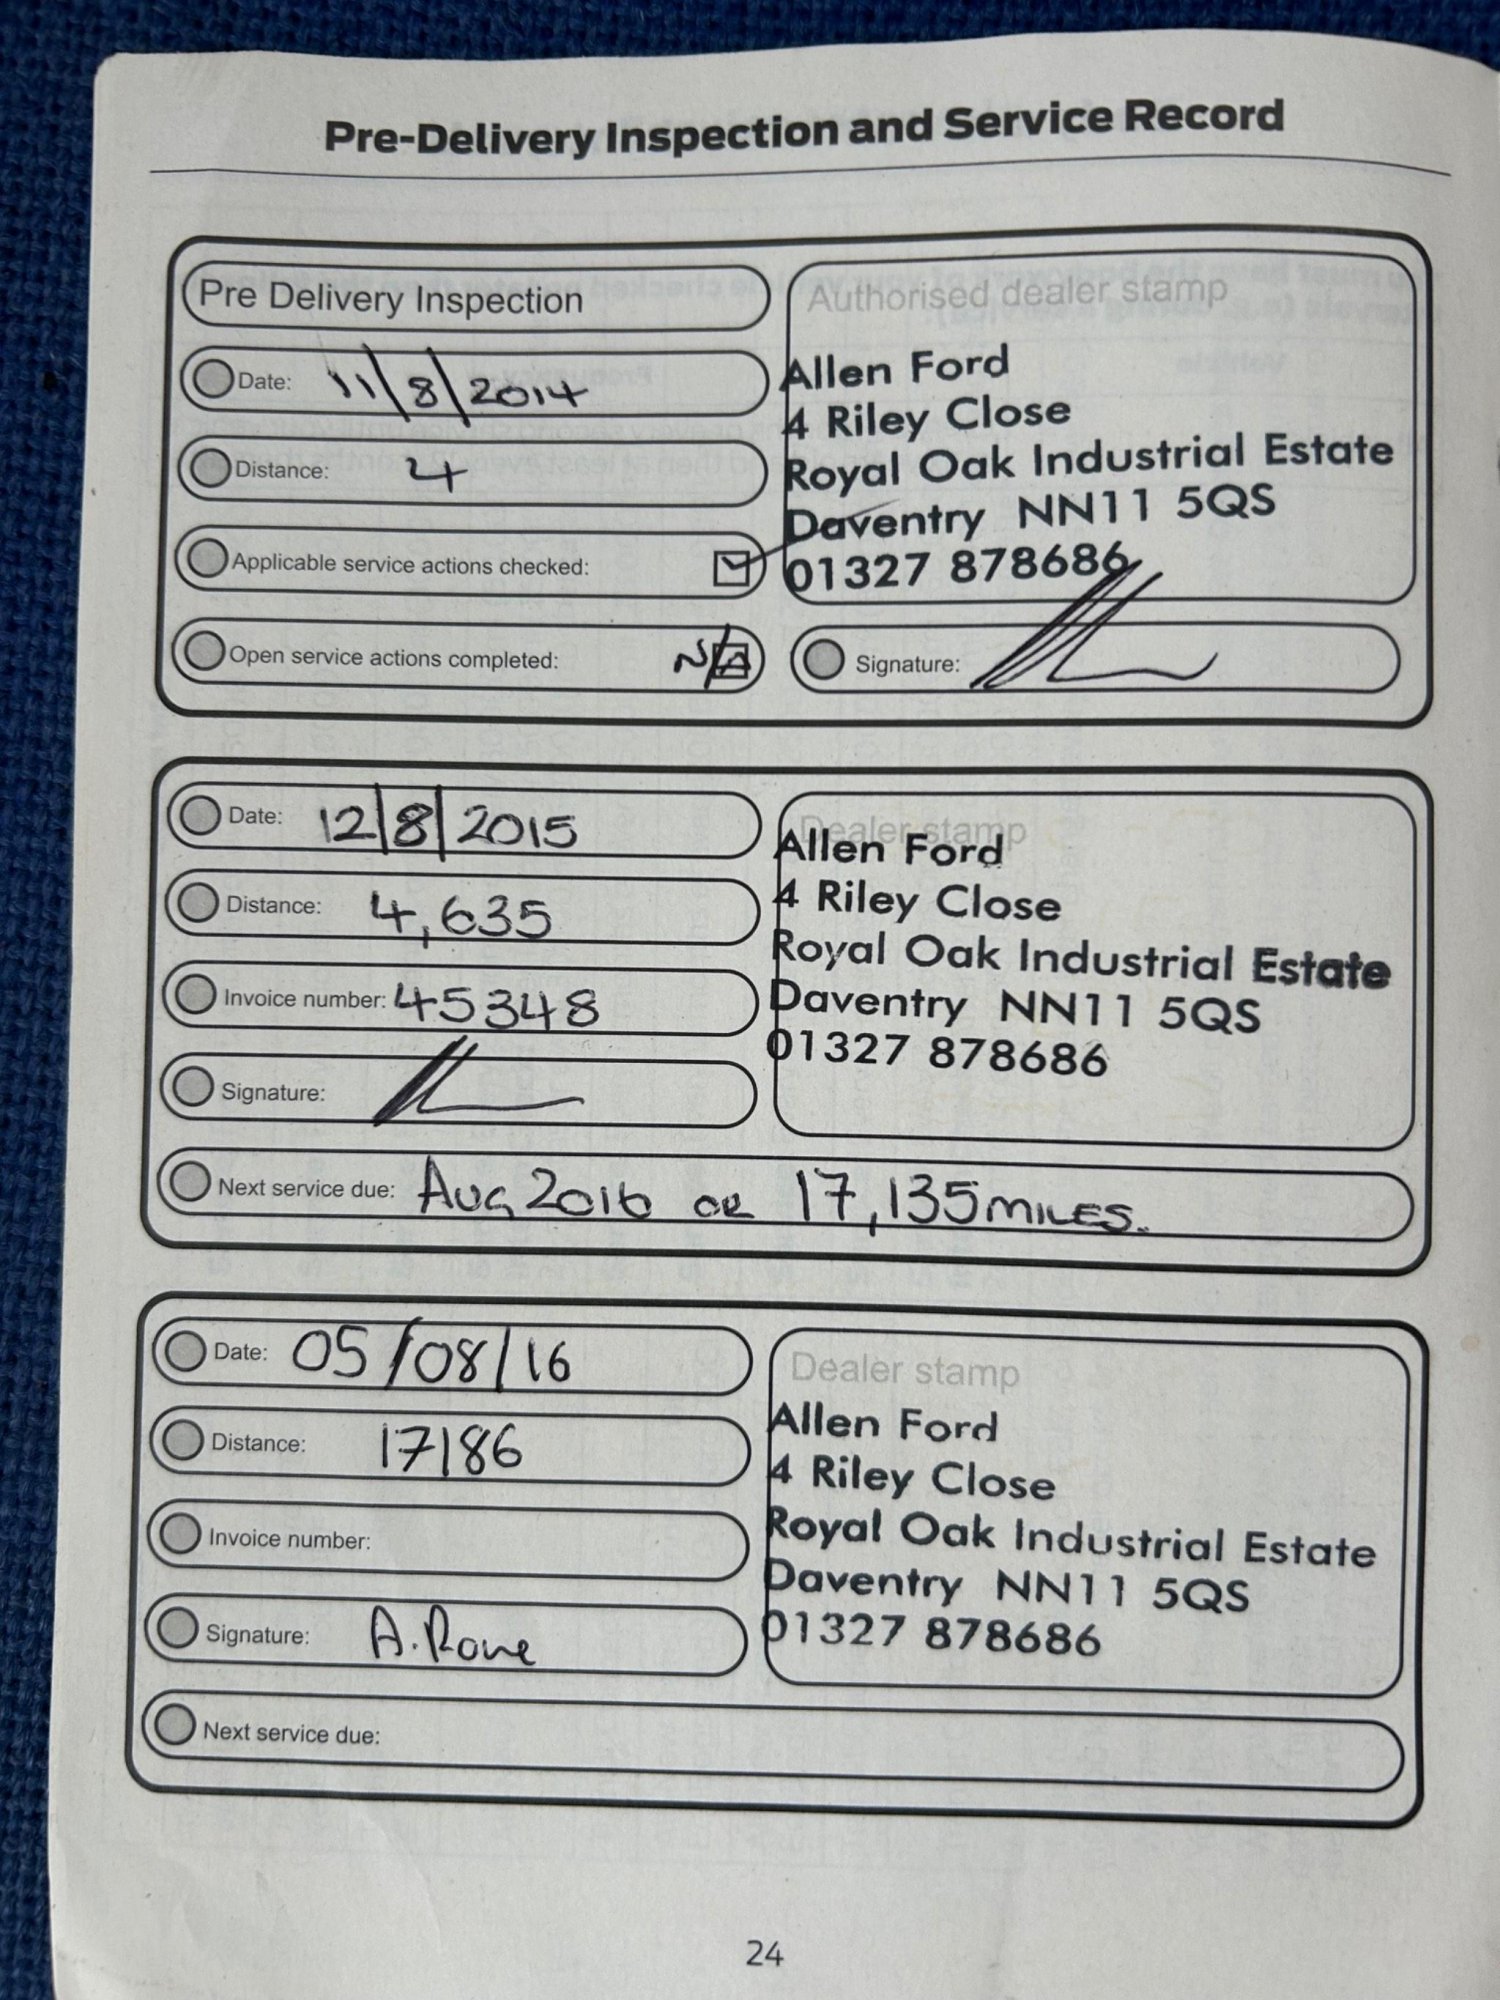 Pre-Delivery Inspection and Service Record
Pre Delivery Inspection
Date: 11/8/2014
Distance: 4
Applicable service actions checked:
Open service actions completed: N/A
Authorised dealer stamp
Allen Ford
4 Riley Close
Royal Oak Industrial Estate
Daventry NN11 5QS
01327 878686
Signature:
Date: 12/8/2015
Distance: 4,635
Invoice number: 45348
Signature:
Dealer stamp
Allen Ford
4 Riley Close
Royal Oak Industrial Estate
Daventry NN11 5QS
01327 878686
Next service due: Aug 2016 OR 17,135 MILES.
Date: 05/08/16
Distance: 17186
Invoice number:
Signature: A. Rowe
Dealer stamp
Allen Ford
4 Riley Close
Royal Oak Industrial Estate
Daventry NN11 5QS
01327 878686
Next service due:
24